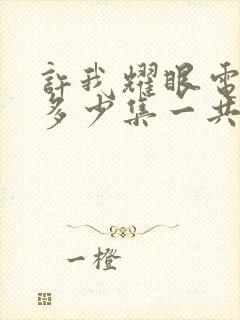 許我耀眼電
多少集一共
一橙